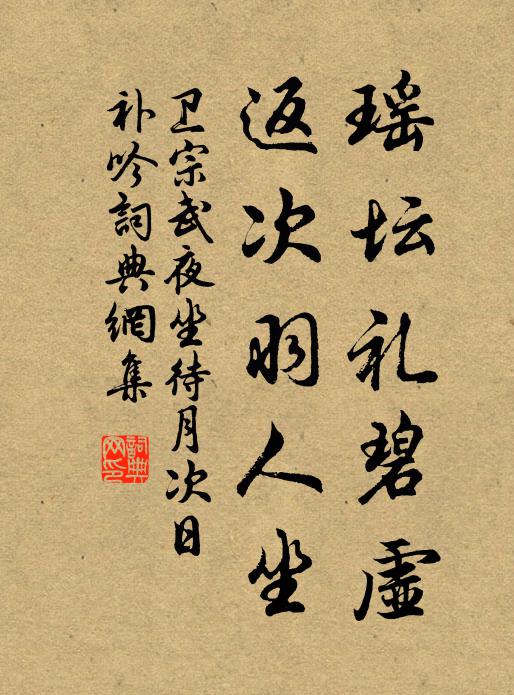 瑶坛礼碧虚
返次羽人坐
卫宗武夜坐待月次日
补吟詞典網集
詞典网印